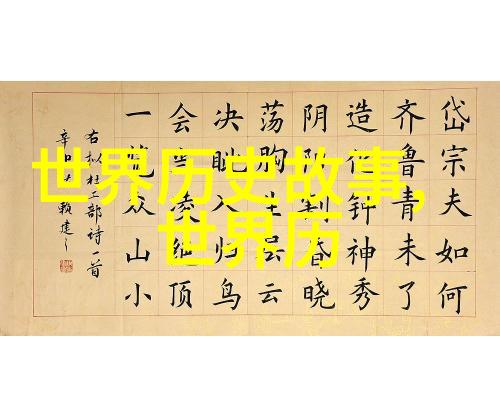 世界历史故事,
世界历
岱宗夫如何
齐鲁青未了
造化钟神秀
阴阳割昏晓
荡胸生层云
决眦入归鸟
会当凌绝顶
一览众山小
右杜工部诗一首
辛赖建